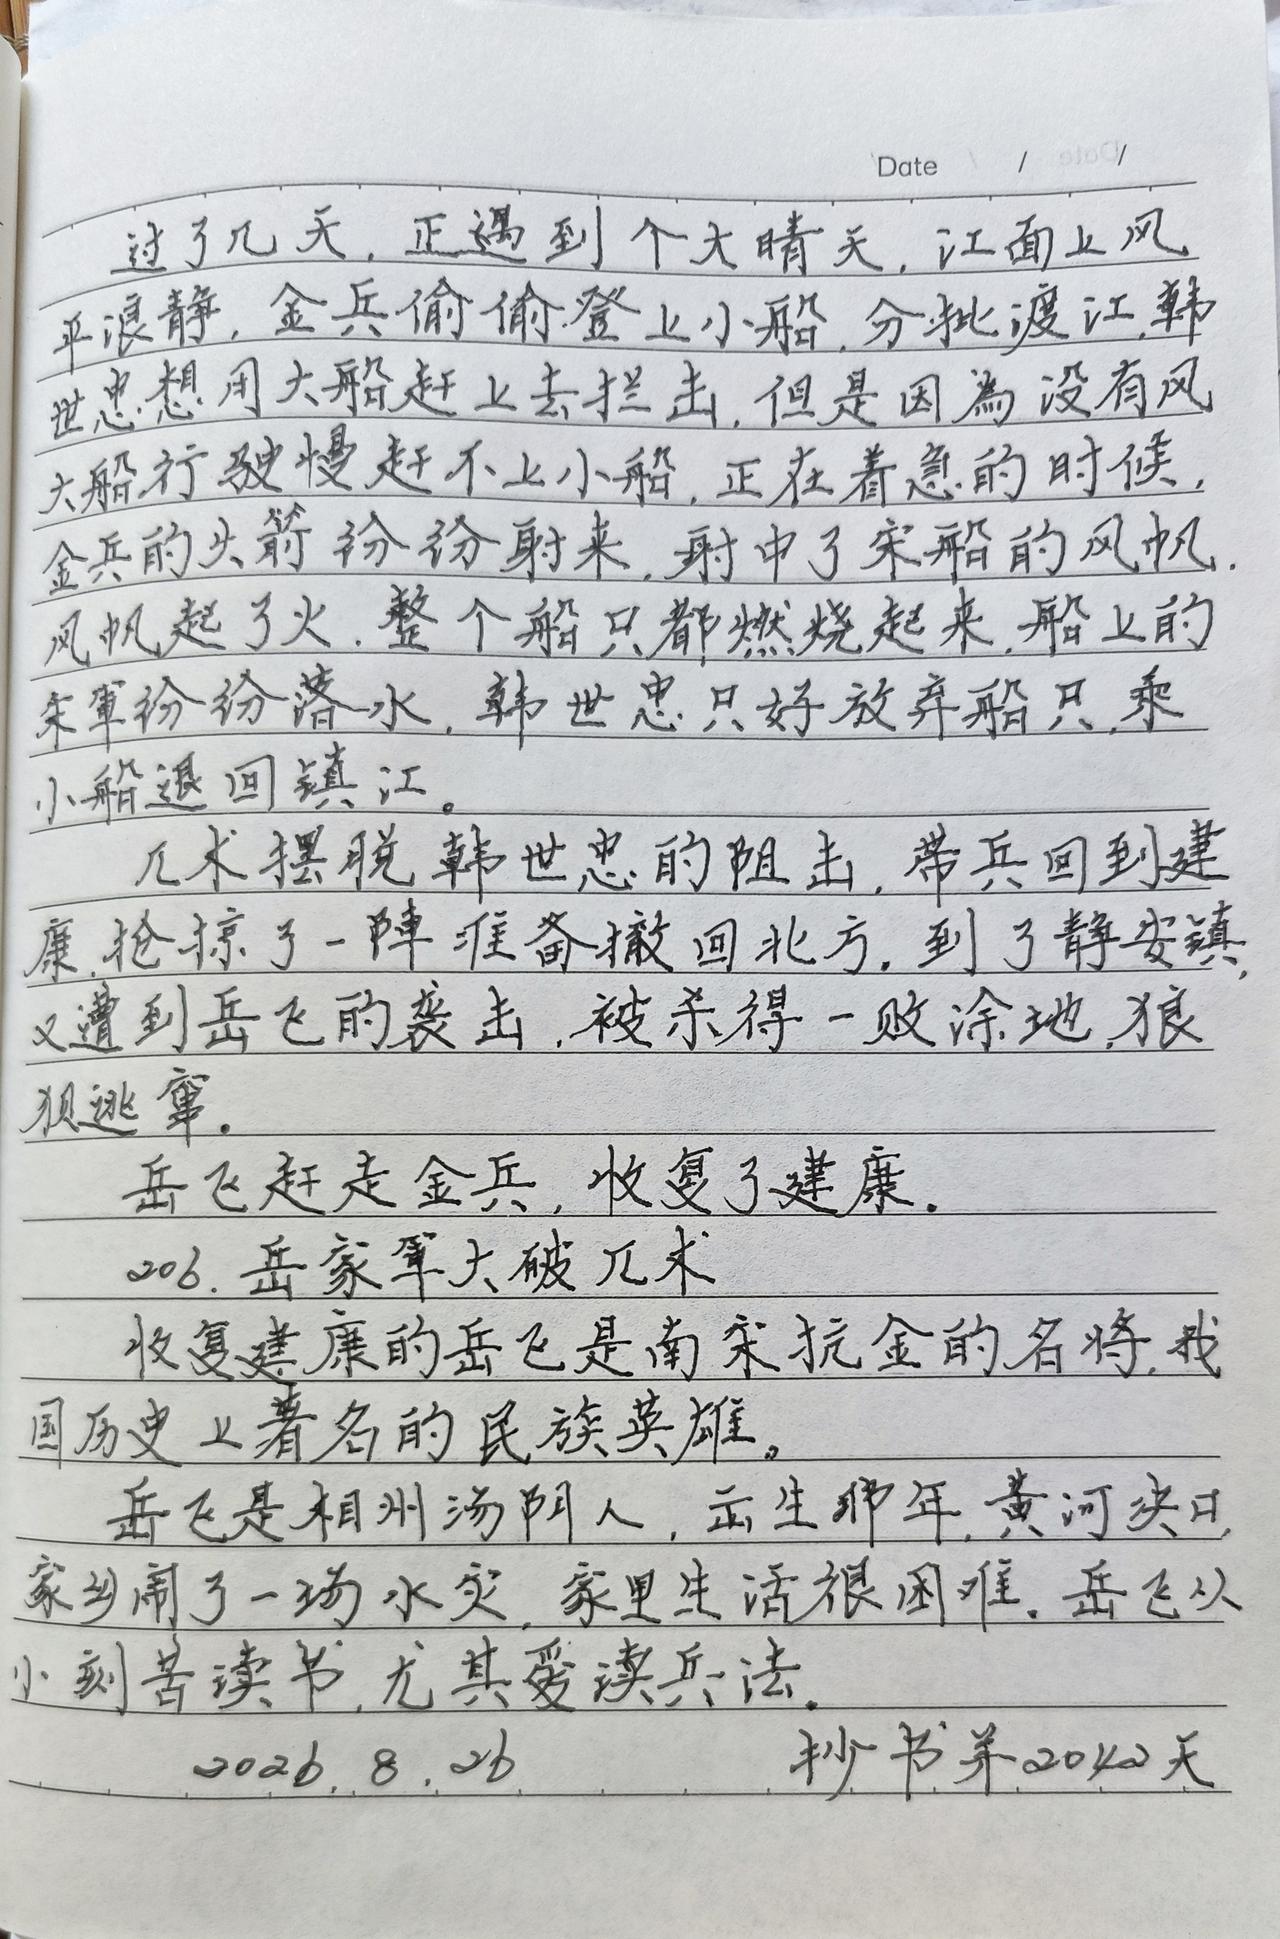 Date / /
过了几天，正遇到个大晴天，江面上风
平浪静，金兵偷偷登上小船，分批渡江，韩
世忠想用大船赶上去拦击，但是因為没有风
大船行驶慢赶不上小船，正在着急的时候，
金兵的火箭纷纷射来，射中了宋船的风帆，
风帆起了火，整个船只都燃烧起来，船上的
宋軍纷纷落水，韩世忠只好放弃船只，乘
小船退回镇江。
兀术摆脱韩世忠的阻击，带兵回到建
康，抢掠了一陣准备撤回北方。到了静安镇，
又遭到岳飞的袭击，被杀得一败涂地，狼
狈逃窜。
岳飞赶走金兵，收复了建康。
206.岳家軍大破兀术
收复建康的岳飞是南宋抗金的名将，我
国历史上著名的民族英雄。
岳飞是相州汤阴人，出生那年，黄河决口，
家乡闹了一场水灾，家里生活很困难。岳飞从
小刻苦读书，尤其爱读兵法。
2026.8.26 抄书第2042天